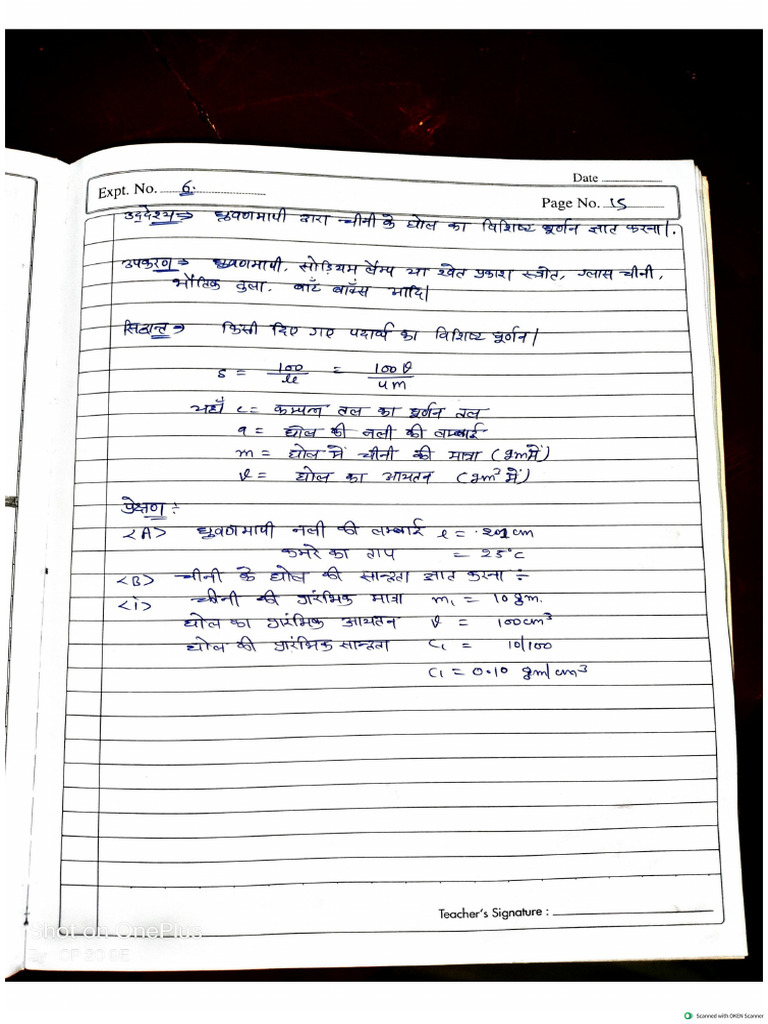 Date
Expt. No. 6.
Page No. 15
उद्देश्य → ध्रुवणमापी द्वारा चीनी के घोल का विशिष्ट घूर्णन ज्ञात करना।
उपकरण → ध्रुवणमापी, सोडियम लैम्प या श्वेत प्रकाश स्त्रोत, ग्लास चीनी,
भौतिक तुला, बाँट बॉक्स आदि।
सिद्धान्त → किसी दिए गए पदार्थ का विशिष्ट घूर्णन।
s = 100/le = 100θ/um
यहाँ c = कम्पन्न तल का घूर्णन तल
q = घोल की नली की लम्बाई
m = घोल में चीनी की मात्रा (gm में)
v = घोल का आयतन (gm³ में)
प्रेक्षण :-
<A> ध्रुवणमापी नली की लम्बाई l = cm
कमरे का ताप = 25°c
<B> चीनी के घोल की सान्द्रता ज्ञात करना :-
<i> चीनी की प्रारंभिक मात्रा m₁ = 10 gm.
घोल का प्रारंभिक आयतन v = 100cm³
घोल की प्रारंभिक सान्द्रता C₁ = 10/100
C₁ = 0.10 gm/cm³
Teacher's Signature :
Shot on OnePlus
Scanned with OKEN Scanner